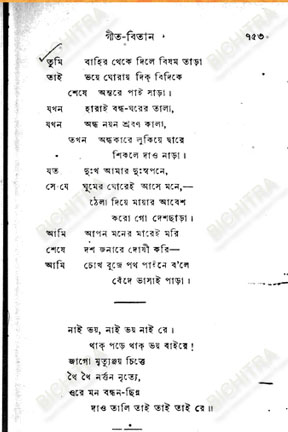 গীত-বিতান ৭৫৩
তুমি বাহির থেকে দিলে বিষম তাড়া
তাই ভয়ে ঘোরায় দিক্ বিদিকে
শেষে অন্তরে পাই সাড়া।
যখন হারাই বন্ধ-ঘরের তালা,
যখন অন্ধ নয়ন শ্রবণ কালা,
তখন অন্ধকারে লুকিয়ে দ্বারে
শিকলে দাও নাড়া।
যত দুঃখ আমার দুঃস্বপনে,
সে যে ঘুমের ঘোরেই আসে মনে,—
ঠেলা দিয়ে মায়ার আবেশ
করো গো দেশছাড়া।
আমি আপন মনের মারেই মরি
শেষে দশ জনারে দোষী করি—
আমি চোখ বুজে পথ পাইনে ব'লে
কেঁদে ভাসাই পাড়া।
নাই ভয়, নাই ভয় নাই রে।
থাক্ পড়ে থাক্ ভয় বাইরে!
জাগো মৃত্যুঞ্জয় চিত্তে
থৈ থৈ নর্ত্তন নৃত্যে,
ওরে মন বন্ধন-ছিন্ন
দাও তালি তাই তাই তাই রে॥
BICHITRA
BICHITRA
BICHITRA
BICHITRA